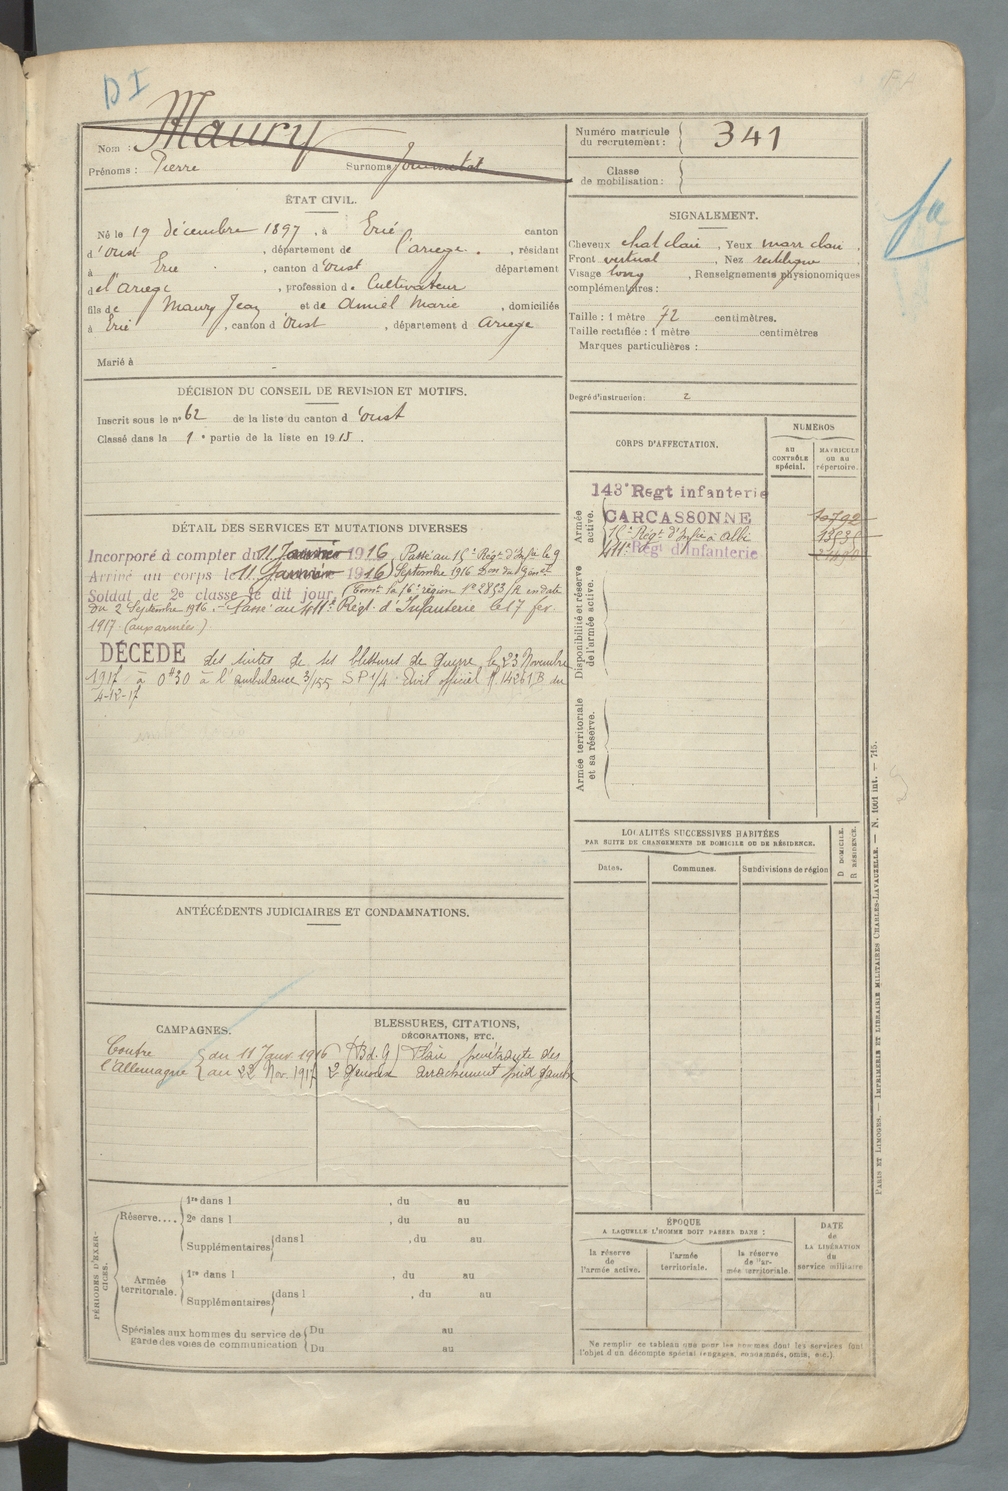 D I
Nom : Maury
Prénoms : Pierre Surnoms
Numéro matricule du recrutement : 341
Classe de mobilisation :
ÉTAT CIVIL.
Né le 19 décembre 1897, à Erié canton
d'Oust, département de l'Ariège, résidant
à Erié, canton d'Oust département
de l'Ariège, profession de Cultivateur
fils de Maury Jean et de Amiel Marie, domiciliés
à Erié, canton d'Oust, département d Ariège
Marié à
SIGNALEMENT.
Cheveux chat clair, Yeux marr clair.
Front vertical, Nez rectiligne,
Visage long, Renseignements physionomiques
complémentaires :
Taille : 1 mètre 72 centimètres.
Taille rectifiée : 1 mètre centimètres
Marques particulières :
Degré d'instruction : 2
DÉCISION DU CONSEIL DE REVISION ET MOTIFS.
Inscrit sous le n° 62 de la liste du canton d'Oust
Classé dans la 1e partie de la liste en 1915.
CORPS D'AFFECTATION.
NUMÉROS
AU CONTRÔLE spécial.
MATRICULE ou au répertoire.
Armée active.
143e Regt infanterie
CARCASSONNE
15e Régt d'Infie à Albi
411e Régt d'Infanterie
Disponibilité et réserve de l'armée active.
Armée territoriale et sa réserve.
DÉTAIL DES SERVICES ET MUTATIONS DIVERSES
Incorporé à compter du 11 Janvier 1916, Passé au 15e Régt d'Infie le 9
Arrivé au corps le 11 Janvier 1916 Septembre 1916
Soldat de 2e classe le dit jour, 16e région n° 2853/R en date
du 2 Septembre 1916. - Passé au 411e Régt d'Infanterie le 17 fev.
1917. (aux armées)
DÉCÉDÉ des suites de ses blessures de guerre le 23 Novembre
1917 à 0h30 à l'ambulance 3/155 S P 1/4. Avis officiel N. 14261 B du
4-12-17
LOCALITÉS SUCCESSIVES HABITÉES
PAR SUITE DE CHANGEMENTS DE DOMICILE OU DE RÉSIDENCE.
Dates. Communes. Subdivisions de région
D DOMICILE.
R RÉSIDENCE.
ANTÉCÉDENTS JUDICIAIRES ET CONDAMNATIONS.
CAMPAGNES.
Contre l'Allemagne
du 11 Janv 1916
au 22 Nov. 1917
BLESSURES, CITATIONS,
DÉCORATIONS, ETC.
(Bd. G) Plaie pénétrante des
2 genoux arrachement pied gauche
PÉRIODES D'EXERCICES.
Réserve....
1re dans l , du au
2e dans l , du au
Supplémentaires dans l , du au
Armée territoriale.
1re dans l , du au
Supplémentaires dans l , du au
Spéciales aux hommes du service de garde des voies de communication
Du au
Du au
ÉPOQUE
A LAQUELLE L'HOMME DOIT PASSER DANS :
la réserve de l'armée active.
l'armée territoriale.
la réserve de l'armée territoriale.
DATE de LA LIBÉRATION du service militaire
Ne remplir ce tableau que pour les hommes dont les services font
l'objet d'un décompte spécial (engagés, condamnés, omis, etc.).
PARIS ET LIMOGES. — IMPRIMERIE ET LIBRAIRIE MILITAIRES CHARLES-LAVAUZELLE. — N. 1001 int. — 715.